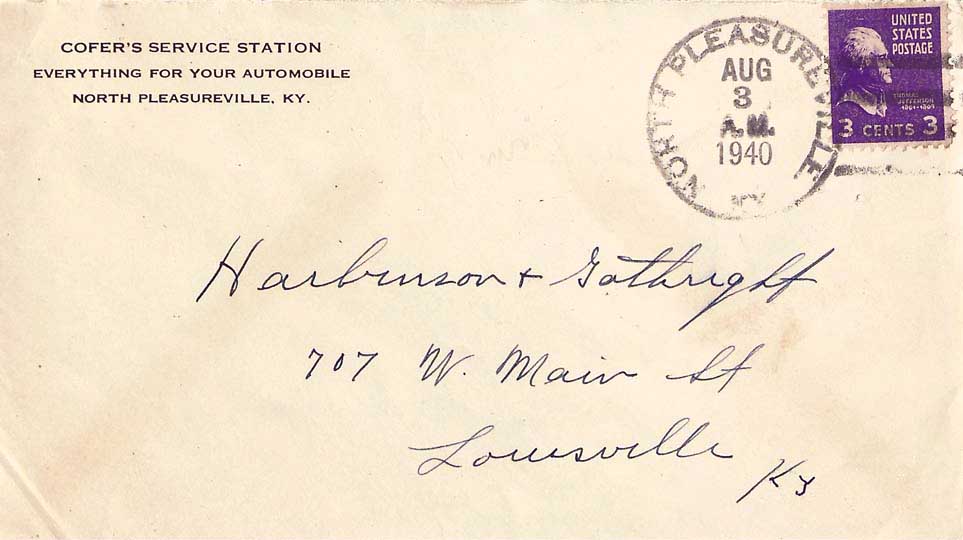 COFER'S SERVICE STATION
EVERYTHING FOR YOUR AUTOMOBILE
NORTH PLEASUREVILLE, KY.
NORTH PLEASUREVILLE
AUG
3
A.M.
1940
KY
UNITED
STATES
POSTAGE
THOMAS
JEFFERSON
1801-1809
3 CENTS 3
Harbinson + Gathright
707 W. Main St
Louisville Ky